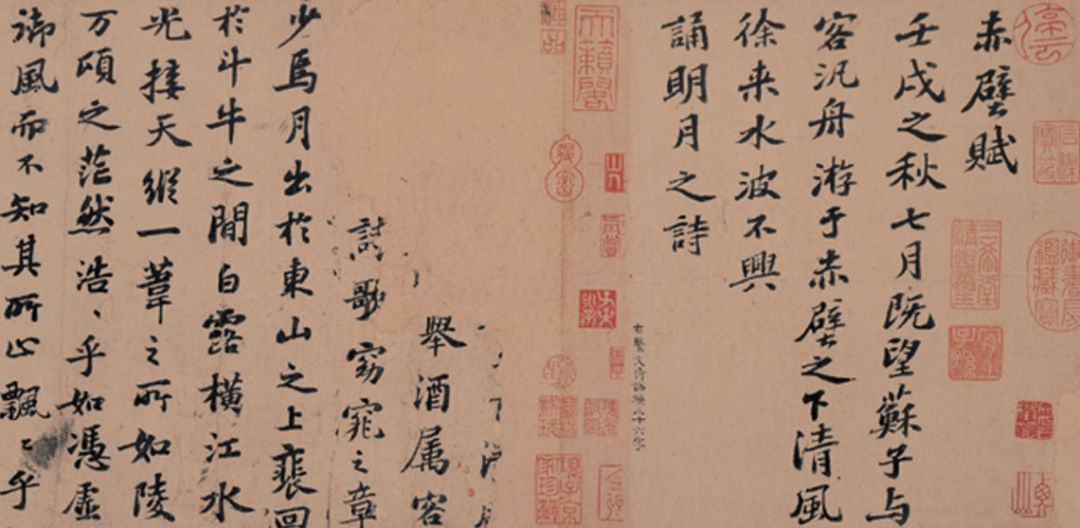 赤壁賦
壬戌之秋七月既望蘇子与
客汎舟游于赤壁之下清風
徐来水波不興
誦明月之詩
天籟閣
舉酒属客
詩歌窈窕之章
少焉月出於東山之上裴回
於斗牛之間白露横江水
光接天縱一葦之所如陵
万頃之茫然浩〻乎如馮虚
御風而不知其所止飄〻乎